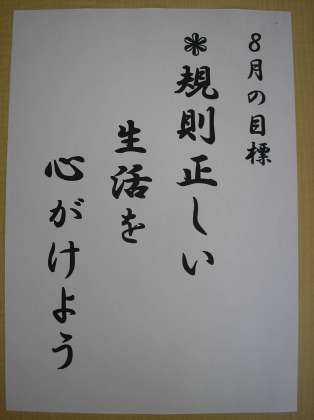 8月の目標
❃規則正しい
生活を
心がけよう